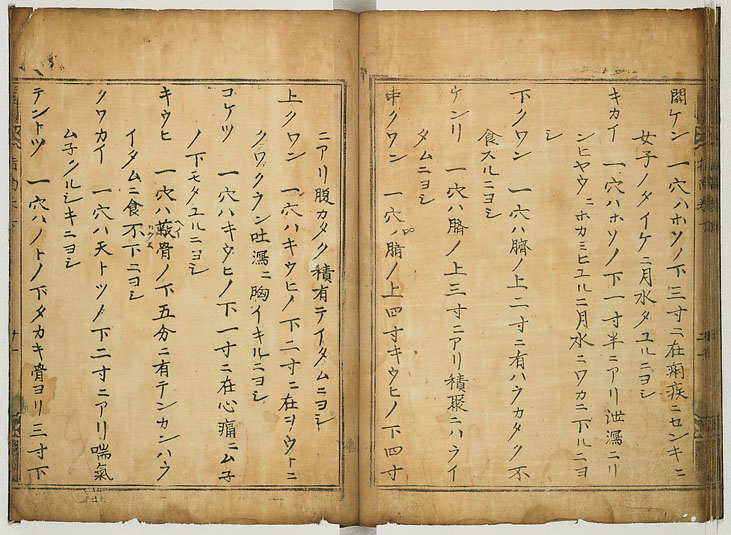 関ケン 一穴ハホソノ下三寸ニ在痢疾ニセンキニ
女子ノタイケニ月水タユルニヨシ
キカイ 一穴ハホソノ下一寸半ニアリ泄瀉ニリ
ンヒヤウニホカミヒユルニ月水ニワカニ下ルニヨ
シ
下クワン 一穴ハ臍ノ上二寸ニ有ハラカタク不
食スルニヨシ
ケンリ 一穴ハ臍ノ上三寸ニアリ積聚ニハライ
タムニヨシ
中クワン 一穴ハ臍ノ上四寸キウヒノ下四寸
ニアリ腹カタク積有テイタムニヨシ
上クワン 一穴ハキウヒノ下二寸ニ在ヲウトニ
クワクラン吐瀉ニ胸イキルニヨシ
コケツ 一穴ハキウヒノ下一寸ニ在心痛ニム子
ノ下モタユルニヨシ
キウヒ 一穴ハ蔽骨ノ下五分ニ有テンカンハラ
イタムニ食不下ニヨシ
クワカイ 一穴ハ天トツノ下二寸ニアリ喘氣
ム子クルシキニヨシ
テントツ 一穴ハノトノ下タカキ骨ヨリ三寸下